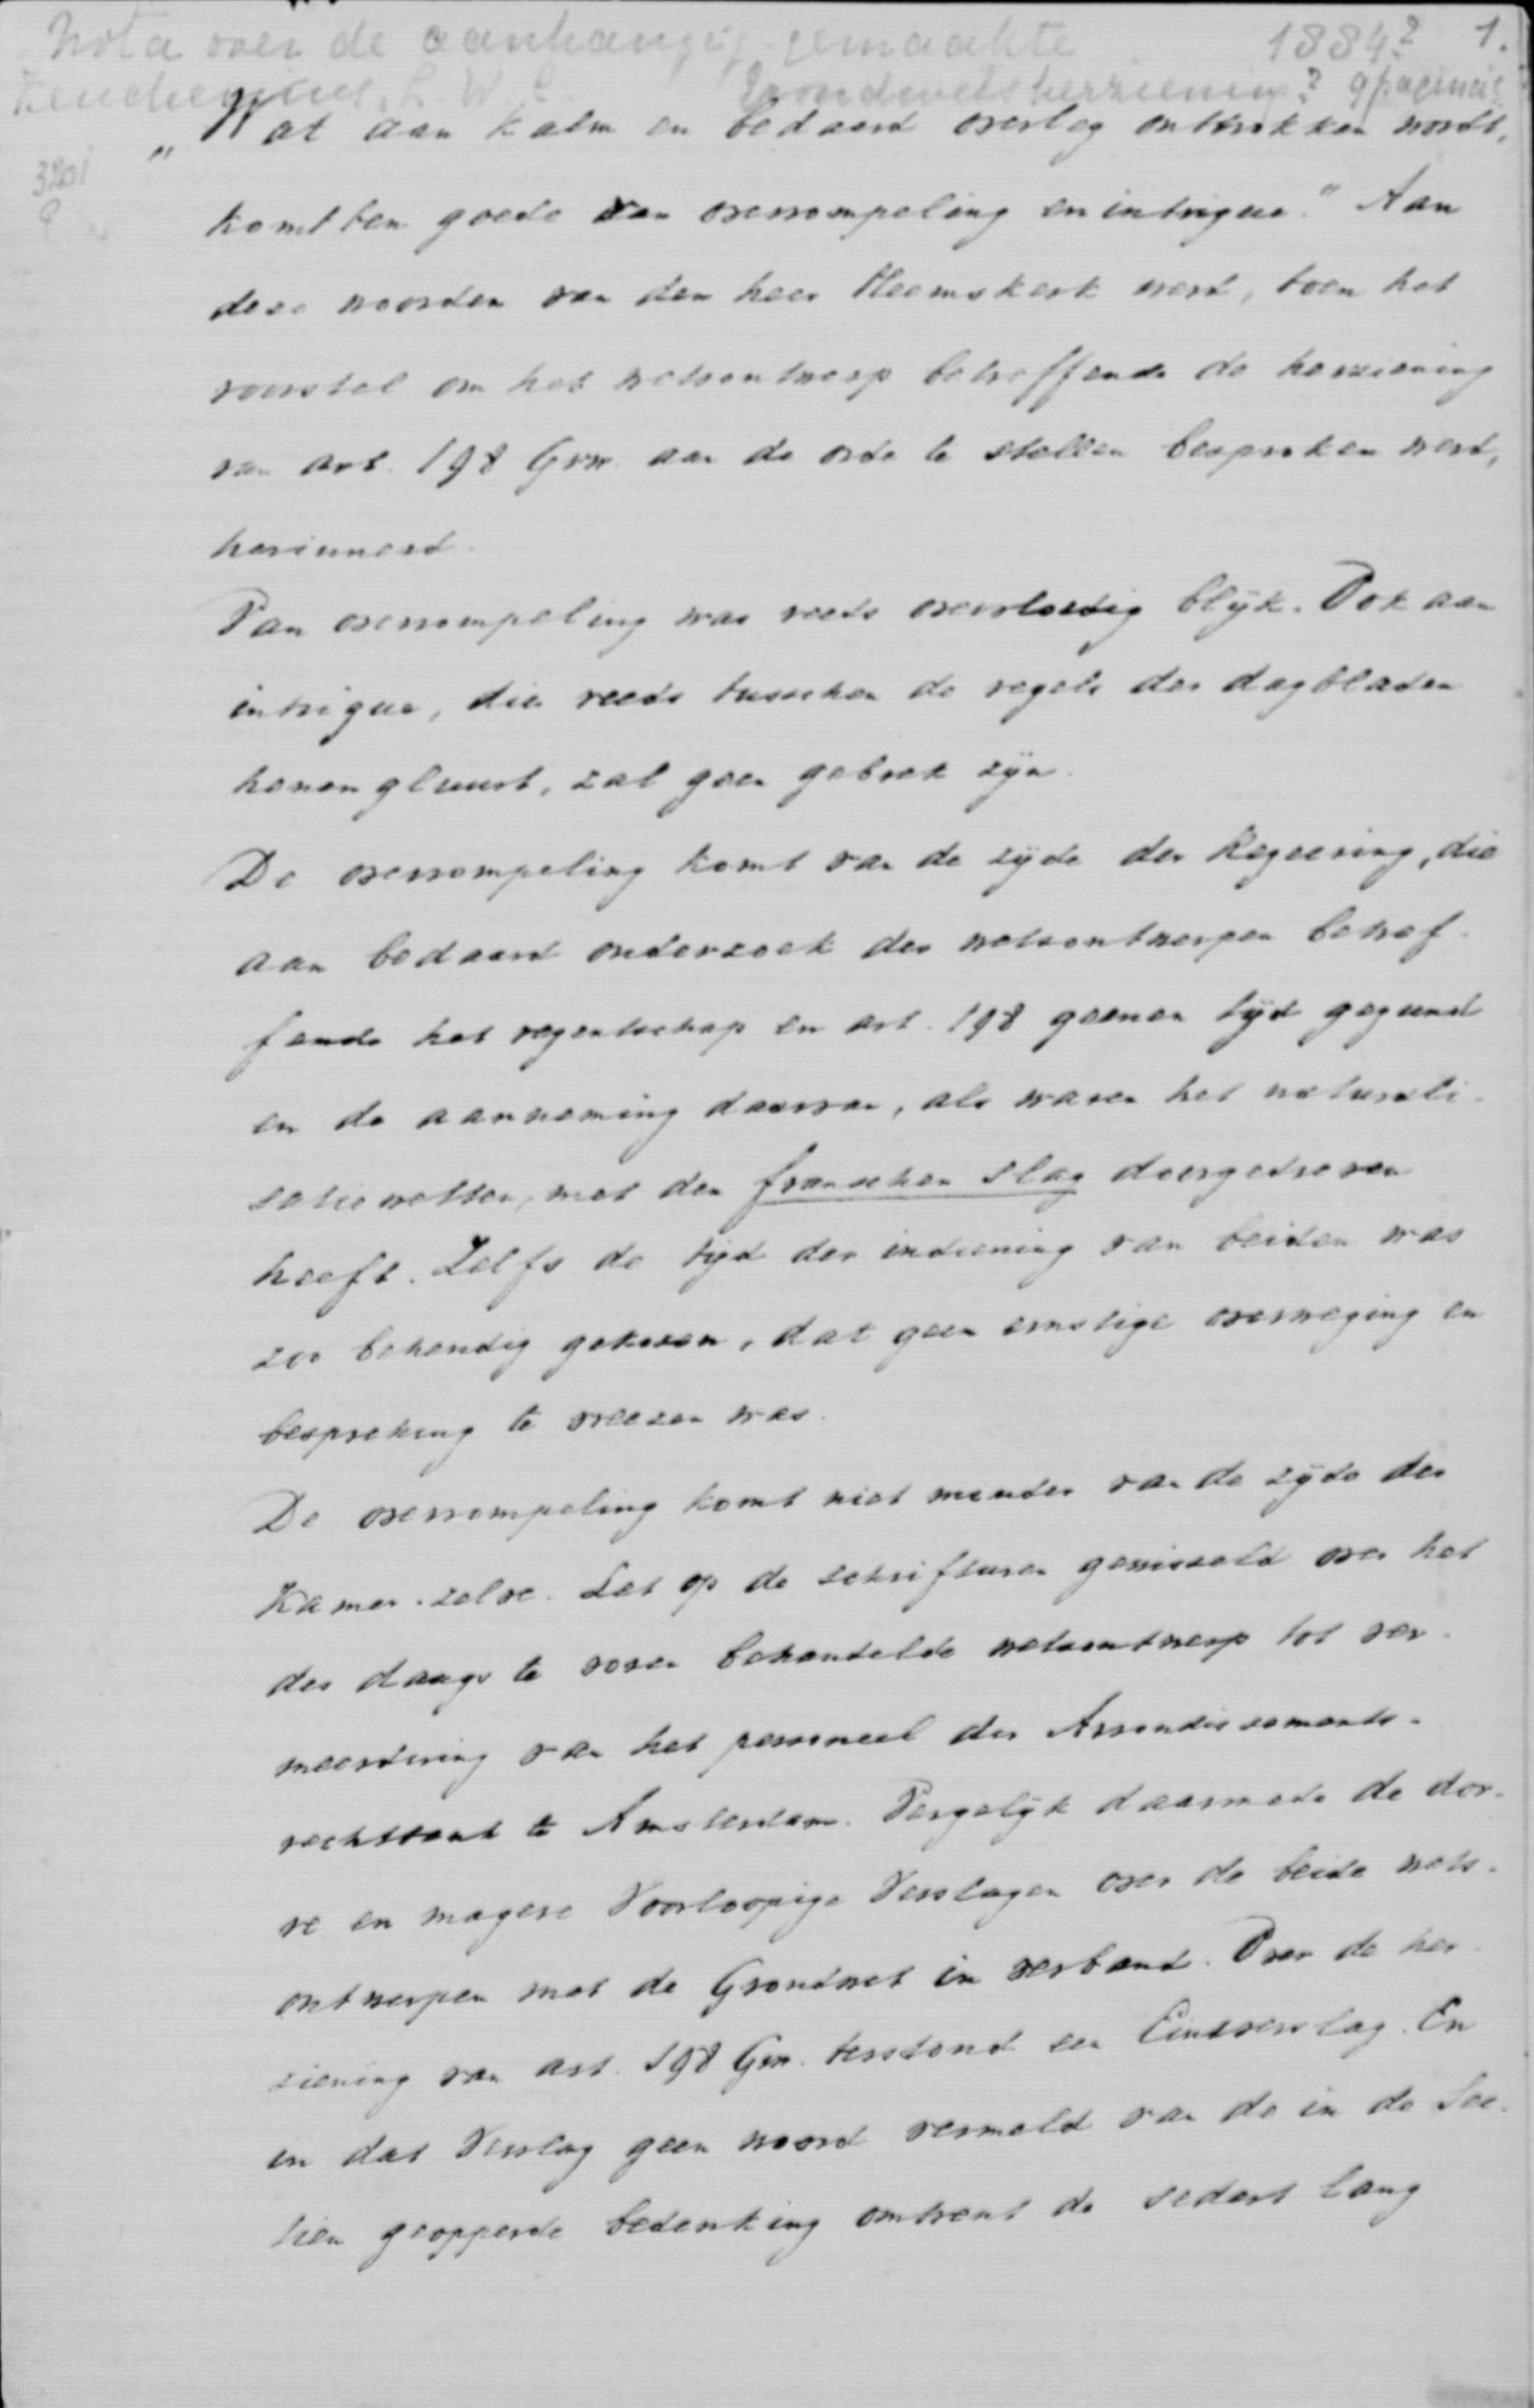 Nota over de aanhangig gemaakte 1884? 1.
Keuchenius, L. W. C. Grondwetsherziening? 9 pagina's
3201
9
„Wat aan kalm en bedaard overleg onttrokken wordt,
komt ten goede van overrompeling en intrigue." Aan
deze woorden van den heer Heemskerk werd, toen het
voorstel om het wetsontwerp betreffende de herziening
van art. 198 Grw. aan de orde te stellen besproken werd,
herinnerd.
Van overrompeling was reeds overvloedig blijk. Ook aan
intrigue, die reeds tusschen de regels der dagbladen
henen gluurt, zal geen gebrek zijn.
De overrompeling komt van de zijde der Regeering, die
aan bedaard onderzoek der wetsontwerpen betref-
fende het regentschap en art. 198 geenen tijd gegund
en de aanneming daarvan, als waren het naturali-
satiewetten, met den franschen slag doorgedreven
heeft. Zelfs de tijd der indiening van beiden was
zoo behendig gekozen, dat geen ernstige overweging en
bespreking te vreezen was.
De overrompeling komt niet minder van de zijde der
Kamer-zelve. Let op de schrifturen gewisseld over het
des daags te voren behandelde wetsontwerp tot ver-
meerdering van het personeel der Arrondissements-
rechtbank te Amsterdam. Vergelijk daarmede de dor-
re en magere Voorloopige Verslagen over de beide wets-
ontwerpen met de Grondwet in verband. Over de her-
ziening van art. 198 Grw. terstond een Eindverslag. En
in dat Verslag geen woord vermeld van de in de Sec-
tien geopperde bedenking omtrent de sedert lang